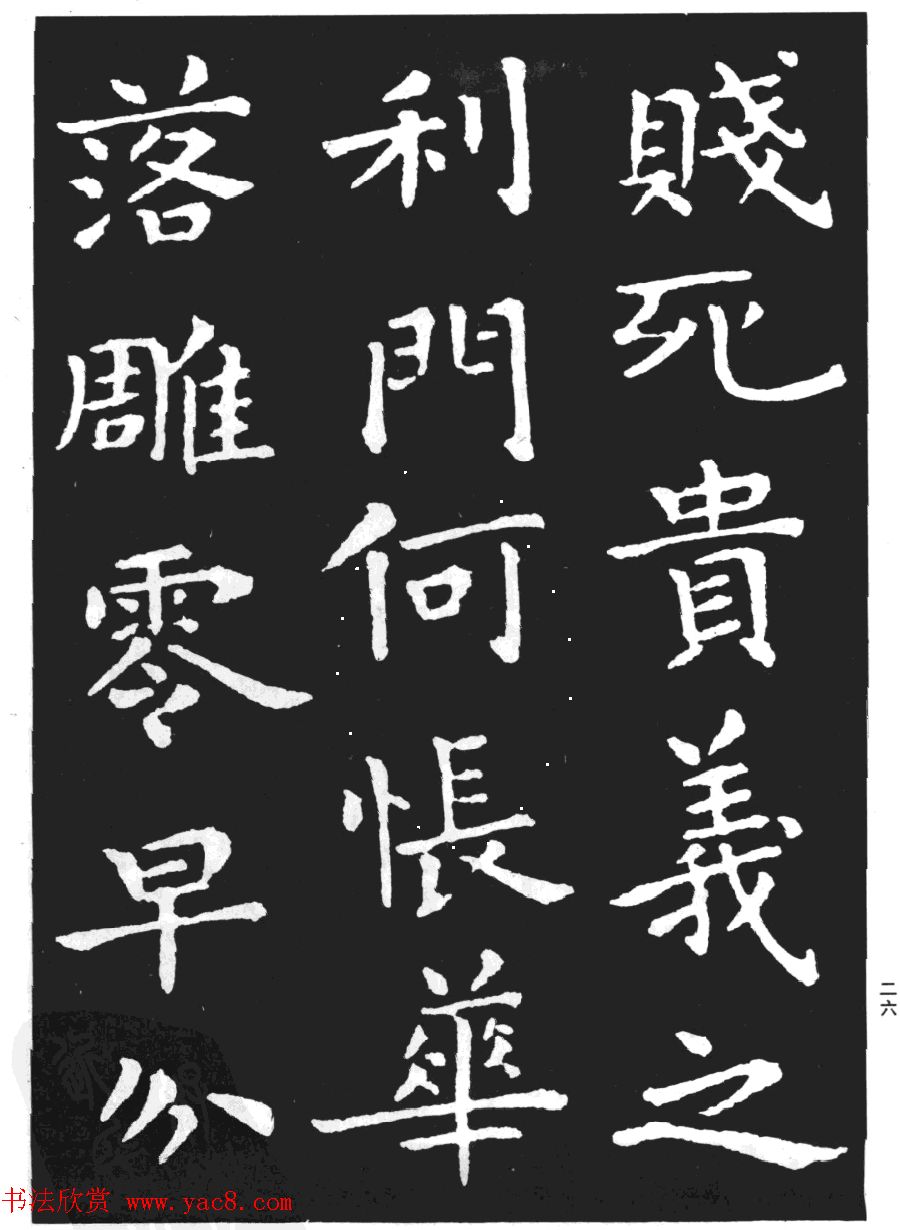 賤死貴義之
利門何悵華
落雕零早分
二六
书法欣赏 www.yac8.com